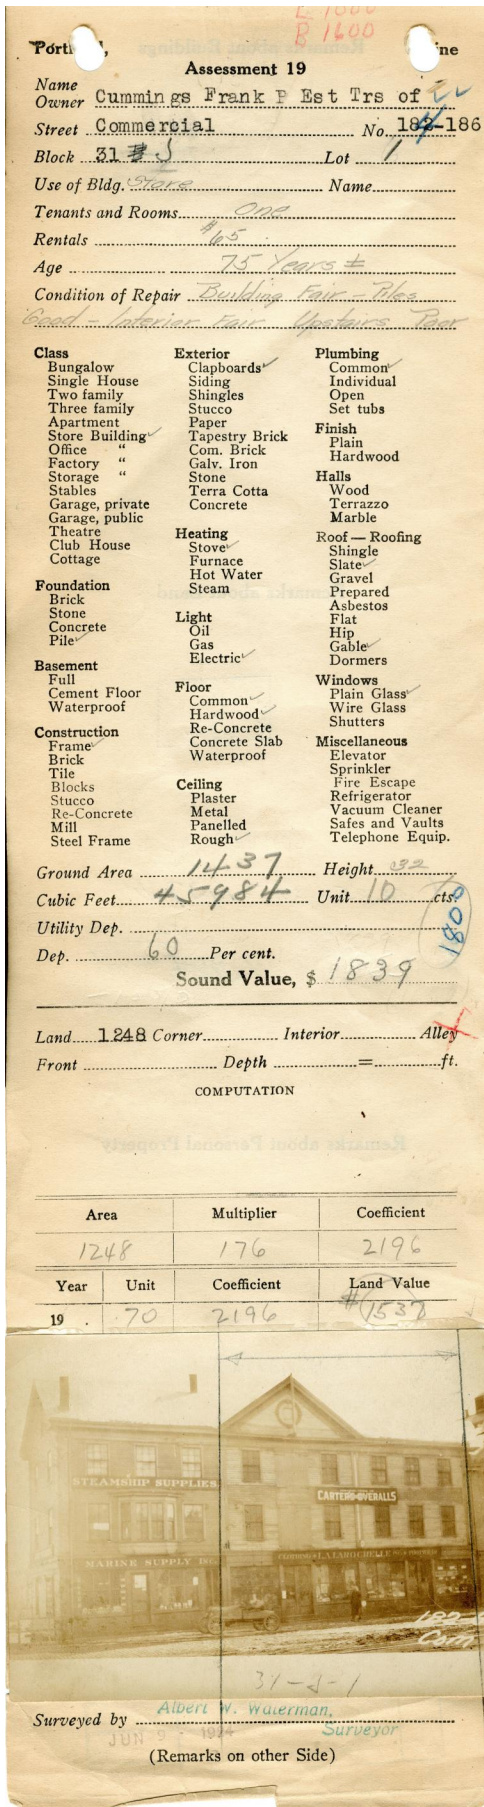 L 1000
B 1600
Portl d, ine
Assessment 19
Name
Owner Cummings Frank P Est Trs of
Street Commercial No. 182-186
4
Block 31 J Lot 1
Use of Bldg. Store Name
Tenants and Rooms One
Rentals $65
Age 75 Years ±
Condition of Repair Building Fair - Piles
Good - Interior Fair Upstairs Poor
Class
Bungalow
Single House
Two family
Three family
Apartment
Store Building ✓
Office "
Factory "
Storage "
Stables
Garage, private
Garage, public
Theatre
Club House
Cottage
Foundation
Brick
Stone
Concrete
Pile ✓
Basement
Full
Cement Floor
Waterproof
Construction
Frame ✓
Brick
Tile
Blocks
Stucco
Re-Concrete
Mill
Steel Frame
Exterior
Clapboards ✓
Siding
Shingles
Stucco
Paper
Tapestry Brick
Com. Brick
Galv. Iron
Stone
Terra Cotta
Concrete
Heating
Stove ✓
Furnace
Hot Water
Steam
Light
Oil
Gas
Electric ✓
Floor
Common ✓
Hardwood ✓
Re-Concrete
Concrete Slab
Waterproof
Ceiling
Plaster
Metal
Panelled
Rough ✓
Plumbing
Common ✓
Individual
Open
Set tubs
Finish
Plain
Hardwood
Halls
Wood
Terrazzo
Marble
Roof — Roofing
Shingle
Slate ✓
Gravel
Prepared
Asbestos
Flat
Hip
Gable ✓
Dormers
Windows
Plain Glass ✓
Wire Glass
Shutters
Miscellaneous
Elevator
Sprinkler
Fire Escape
Refrigerator
Vacuum Cleaner
Safes and Vaults
Telephone Equip.
Ground Area 1437 Height 32
Cubic Feet 45984 Unit 10 cts.
1800
Utility Dep.
Dep. 60 Per cent.
Sound Value, $ 1839
Land 1248 Corner Interior Alley
Front Depth = ft.
COMPUTATION
Area Multiplier Coefficient
1248 176 2196
Year Unit Coefficient Land Value
19 70 2196 $1537
STEAMSHIP SUPPLIES
CARTER'S OVERALLS
MARINE SUPPLY
182-
Com
31-J-1
Surveyed by Albert W. Waterman,
Surveyor
JUN 9 - 1924
(Remarks on other Side)